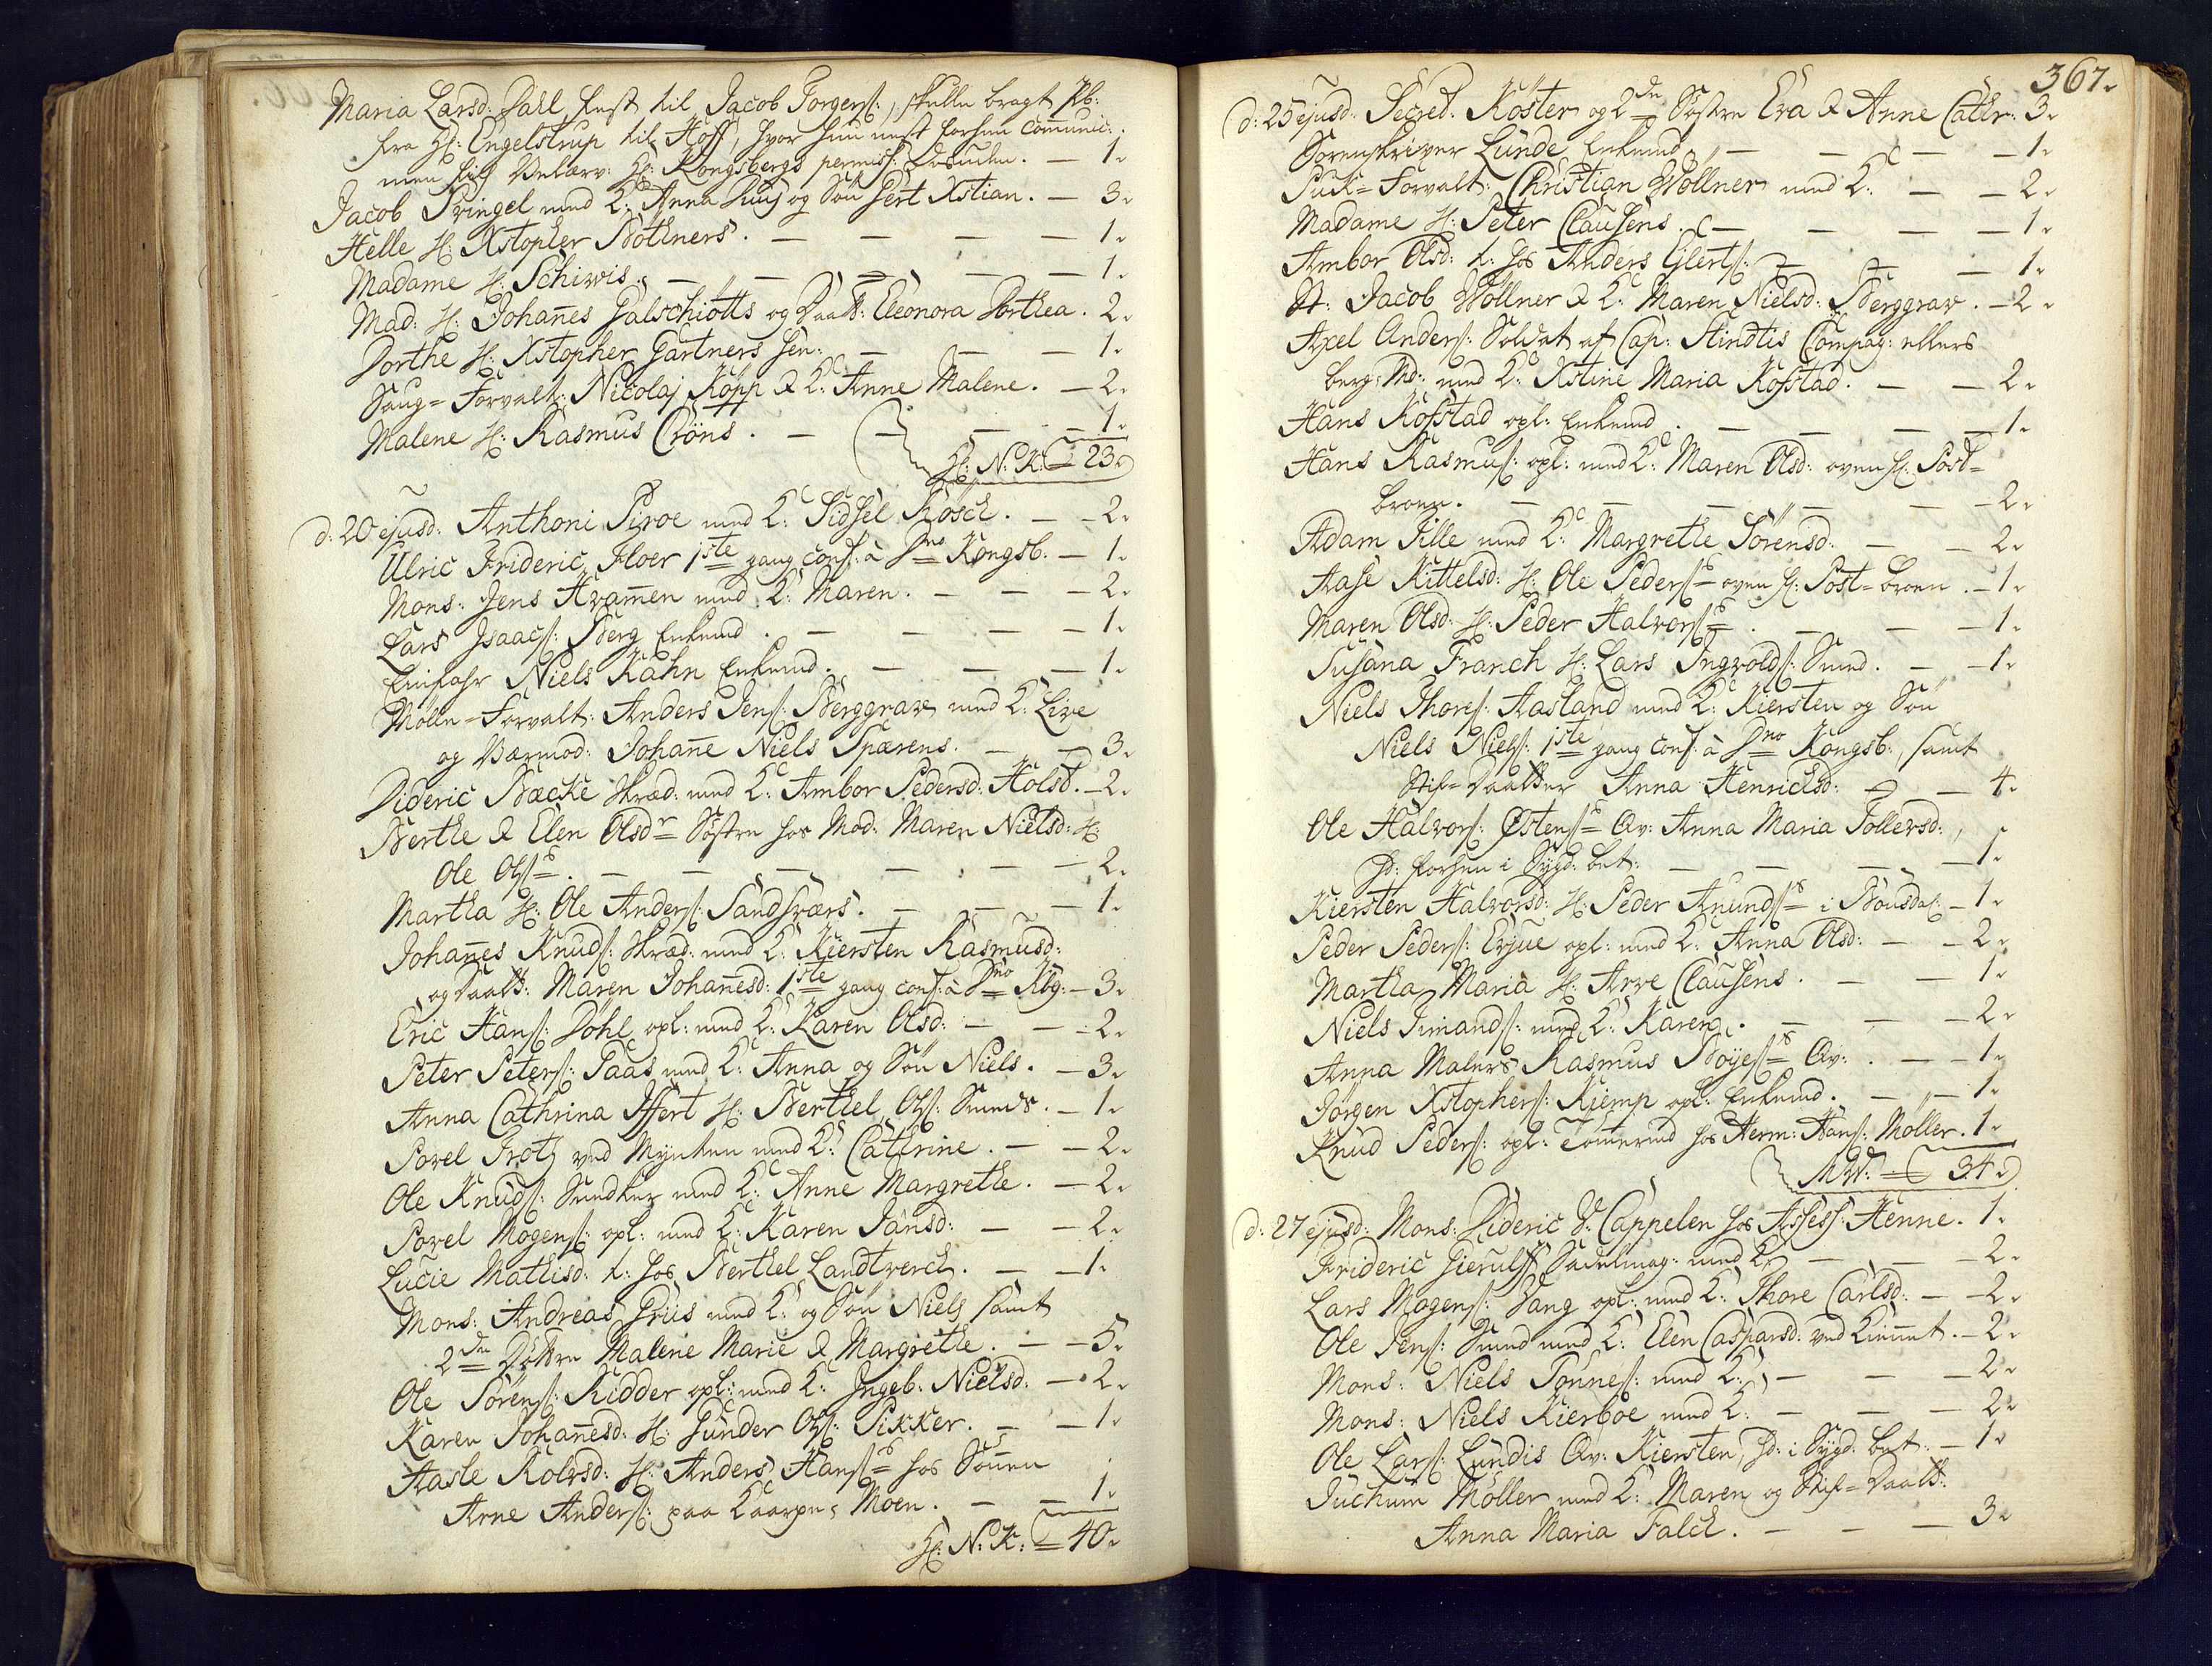 Maria Larsd: Dahl fest til Jacob Torgers:, skulle bragt Ab:
fra H: Engelstrup til Hoff, hvor hun nest forhen communic:
men fik H: Kongsbergs permiss: desuden. — 1.
Jacob Pringel med K: Anna Huus og Søn Gert Xstian. — 3.
Helle H: Xstopher Bothners. — — — — 1.
Madame H: Schiwis. — — — — 1.
Mad: H: Johanes Galschiötts og Daatt: Eleonora Dorthea. 2.
Dorthe H: Xstopher Gartners sen: — — — 1.
Saug-Forvalt: Nicolaj Köpp & K: Anne Malene. — 2.
Malene H: Rasmus Cröns. — — — 1.
H: N: K: = 23.
d: 20 ejusd: Anthoni Piroe med K: Sidsel Rosch. — — 2.
Ulric Frideric Floer 1ste gang conf: à Dno Kongsb. — 1.
Mons: Jens Hramen med K: Maren. — — — 2.
Lars Isaacs: Berg Enkemd. — — — 1.
Einfahr Niels Kahn Enkemd. — — — 1.
Mölle-Forvalt: Anders Jens: Berggrav med K: Live
og Værmod: Johane Niels Spærens. — — 3.
Dideric Bæcke Skræd: med K: Ambor Pedersd: Holst. — 2.
Berthe & Elen Olsdr Søstre hos Mod: Maren Nielsd: H:
Ole Ols: — — — — — 2.
Martha H: Ole Anders: Sandsværs. — — — 1.
Johanes Knuds: Skræd: med K: Kiersten Rasmusd:
og Daatt: Maren Johanesd: 1ste gang conf: à Dno Kbg: — 3.
Eric Hans: Dohl opl: med K: Karen Olsd: — — 2.
Peter Peters: Paas med K: Anna og Søn Niels. — 3.
Anna Cathrina Iffert H: Berthel Ols: Smeds. — 1.
Povel Trots ved Mynten med K: Cathrine. — — 2.
Ole Knuds: Smedker med K: Anne Margrethe. — 2.
Povel Mogens: opl: med K: Karen Jansd: — — 2.
Lucie Mathisd: t: hos Berthel Landtverch. — — 1.
Mons: Andreas Grüis med K: og Søn Niels samt
2de Døttre Malene Marie & Margrethe. — — 5.
Ole Sörens: Ridder opl: med K: Ingeb: Nielsd: — 2.
Karen Johanesd: H: Gunder Ols: Pikker. — — 1.
Aaste Rolvsd: H: Anders Hans: hos Sønen
Arne Anders: paa Kaarpes Moen. — — 1.
H: N: K: = 40.
367.
d: 25 ejusd: Secret: Köster og 2de Søstre Eva & Anne Cathr: 3.
Sorenskriver Lunde Enkemd — — — — 1.
Puk-Forvalt: Christian Wöllner med K: — — 2.
Madame H: Peter Clausens. — — — — 1.
Ambor Olsd: t: hos Anders Ejlerts: — — — 1.
St: Jacob Wöllner & K: Maren Nielsd: Berggrav. — 2.
Axel Anders: Soldat af Cap: Hindtis Compag: ellers
berg: Md: med K: Xstine Maria Kofstad. — — 2.
Hans Kofstad opl: Enkemd. — — — — 1.
Hans Rasmus: opl: med K: Maren Olsd: oven f: Post-
broen. — — — — — 2.
Adam Tille med K: Margrethe Sörensd: — — 2.
Aase Kittelsd: H: Ole Peders: oven f: Post-broen. — 1.
Maren Olsd: H: Peder Halvors: — — — 1.
Susana Franch H: Lars Ingvolds: Smed. — — 1.
Niels Thores: Aasland med K: Kiersten og Søn
Niels Niels: 1ste gang conf: à Dno Kongsb:, samt
Stif-Daatter Anna Henrichsd: — — 4.
Ole Halvors: Østens: Qv: Anna Maria Tollevsd:,
Sd: forhen i Sygd: bet: — — — — 1.
Kiersten Halvorsd: H: Peder Anunds: i Bousdal: — 1.
Peder Peders: Erjue opl: med K: Anna Olsd: — — 2.
Martha Maria H: Arve Clausens. — — 1.
Niels Jimands: med K: Karen. — — — 2.
Anna Malers Rasmus Boyes: Qv: — — 1.
Jörgen Xstophers: Kiemp opl: Enkemd. — — 1.
Knud Peders: opl: Tømermd hos Herm: Hans: Möller. 1.
MW: = 34.
d: 27 ejusd: Mons: Dideric V: Cappelen hos Assess: Henne. 1.
Frideric Gierulff Sadelmag: med K: — — — 2.
Lars Mogens: Vang opl: med K: Thore Carlsd: — 2.
Ole Jens: Smed med K: Elen Caspersd: ved — 2.
Mons: Niels Tønnes: med K: — — — 2.
Mons: Niels Kierboe med K: — — — 2.
Ole Lars: Lundis Qv: Kiersten, Sd: i Sygd: bet: — 1.
Juchum Möller med K: Maren og Stif-Daatt:
Anna Maria Falch. — — — 3.